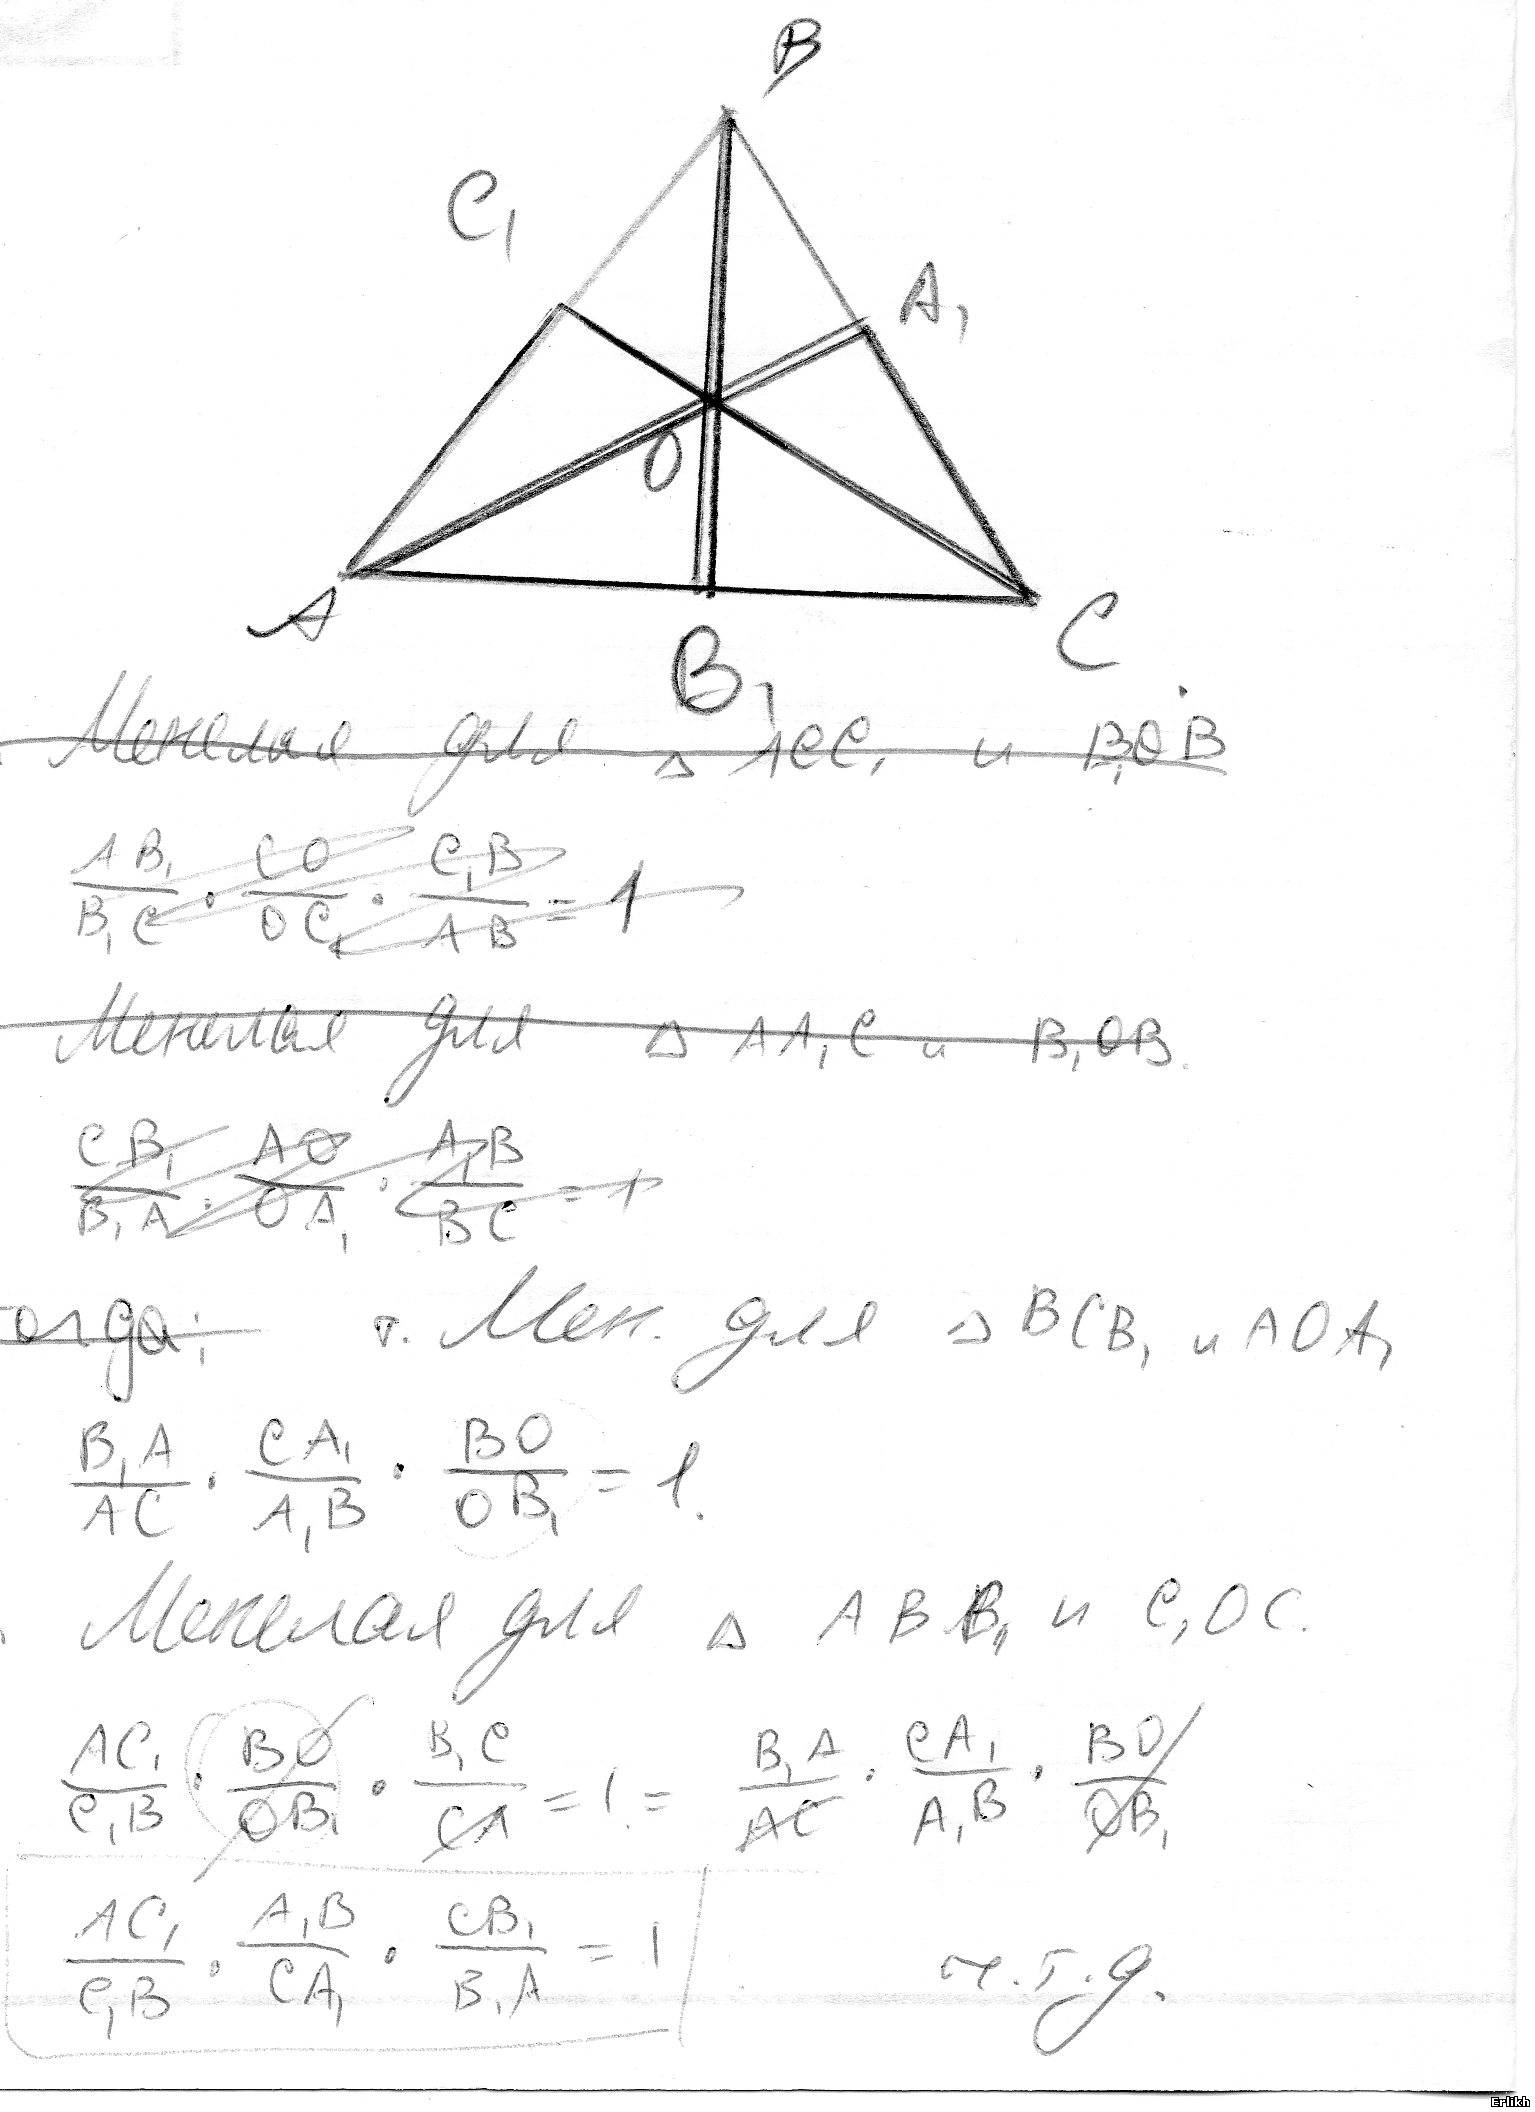 B
C₁
A₁
O
A
B₁
C
Менелая для △ ACC₁ и B₁OB
AB₁/B₁C · CO/OC₁ · C₁B/AB = 1
Менелая для △ AA₁C и B₁OB.
CB₁/B₁A · AO/OA₁ · A₁B/BC = 1
тогда; т. Мен. для △ BCB₁ и AOA₁
B₁A/AC · CA₁/A₁B · BO/OB₁ = 1.
Менелая для △ ABB₁ и C₁OC.
AC₁/C₁B · BO/OB₁ · B₁C/CA = 1 = B₁A/AC · CA₁/A₁B · BO/OB₁
AC₁/C₁B · A₁B/CA₁ · CB₁/B₁A = 1 ч.т.д.
Erlikh